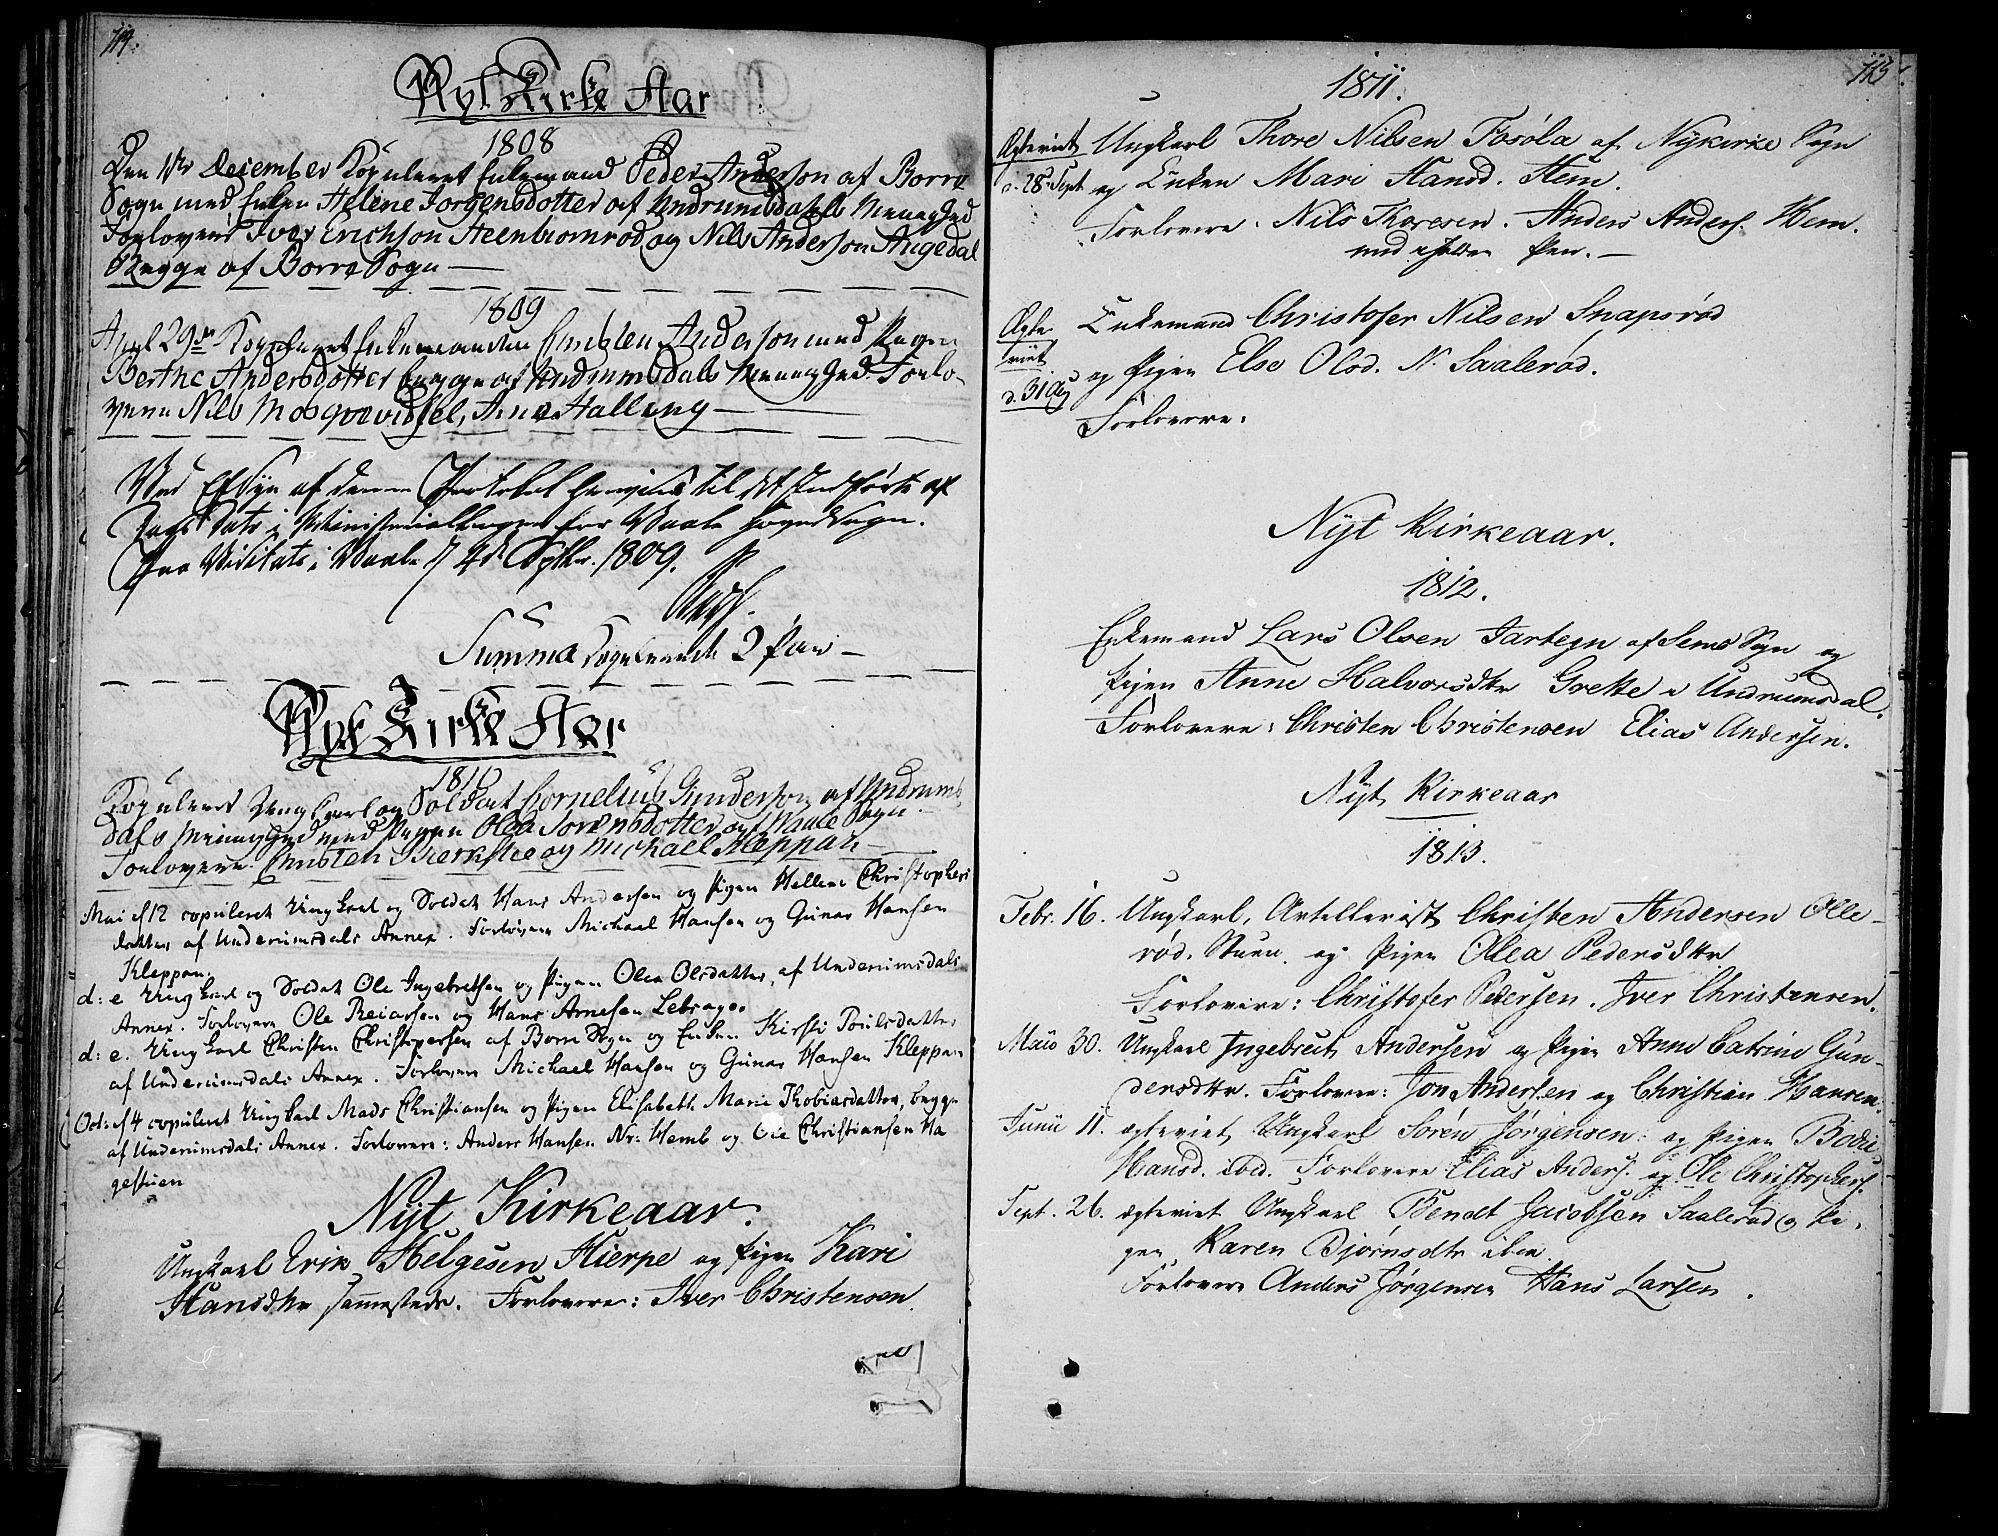 114.
Nyt Kirke Aar
1808
Den 1te December Copuleret Enkemand Peder Anderson af Borre
Sogn med Enken Helene Jorgensdotter af Undrumsdals Menighed
Forlovere Iver Erichson Steenbiomrod og Nils Anderson Augedal
Begge af Borre Sogn
1809
April 29de Copuleret Enkemanden Christen Anderson med Pigen
Berthe Andersdotter begge af Undrumsdals Menighed. Forlo-
vere Nils Mosqvevidsel, Arne Halling
Ved Eftsyn af denne Protokol henvises til det Indførte af
Dags Dato i Ministerialbogen for Vaale Hovedsogn.
Paa Visitats i Vaale 4de Septbr. 1809.
Summa Copulerede 2 Par
Nyt Kirke Aar
1810
Copuleret Ungkarl og Soldat Cornelius Gunderson af Undrums-
dals Menighed med Pigen Olea Sorensdotter af Waale Sogn.
Forlovere Christen Bierkøe og Michael Kleppan
Mai d 12 copuleret Ungkarl og Soldat Hans Andersen og Pigen Hellene Christophers
datter af Underumsdals Annex. Forlovere Michael Hansen og Gunar Hansen
Kleppan.
d: e. Ungkarl og Soldat Ole Ingebretsen og Pigen Olea Olsdatter, af Underumsdals
Annex. Forlovere Ole Reiarsen og Hans Arnesen Lebsager
d: e. Ungkarl Christen Christopersen af Borre Sogn og Enken Kirsti Poulsdatter
af Underumsdals Annex. Forlovere Michael Hansen og Gunar Hansen Kleppan
Oct: d 4 copuleret Ungkarl Mads Christiansen og Pigen Elisabeth Marie Thobiasdatter, begge
af Underumsdals Annex. Forlovere: Anders Hansen Nr: Hemb og Ole Christiansen Ha
gestuen
Nÿt Kirkeaar.
Ungkarl Erik Helgesen Hierpe og Pigen Kari
Hansdtr sammesteds. Forlovere: Iver Christensen.
115.
1811.
Ægteviet Ungkarl Thore Nilsen Fosøla af Nykirke Sogn
d. 28. Sept og Enken Mari Hansd. Hem.
Forlovere. Nils Thoresen. Anders Anders. Hem.
med iholden Pen.
Ægte Enkemand Christofer Nilsen Snapsrød
viet og Pigen Else Olsd. N. Saalerød.
d. 31
Forlovere:
Nyt Kirkeaar.
1812.
Enkemand Lars Olsen Jartegn af Sems Sogn og
Pigen Anne Halvorsdtr Grette i Undrumsdal.
Forlovere: Christen Christensen Elias Andersen.
Nyt Kirkeaar
1813.
Febr. 16. Ungkarl, Artellerist Christen Andersen Olle-
rød. Stuen. og Pigen Olea Pedersdtr
Forlovere: Christofer Pedersen. Iver Christensen.
Maio 30. Ungkarl Ingebret Andersen og Pigen Anne Catrine Gun-
dersdtr. Forlovere: Jon Andersen og Christian Hansen.
Junii 11. ægteviet Ungkarl Sørén Jørgensen og Pigen Bodil
Hansd. ibid. Forlovere Elias Anders. og Ole Christophers.
Sept. 26. ægteviet Ungkarl Bendt Jacobsen Saalerød og Pi-
gen Karen Bjørnsdtr ibid.
Forlovere Anders Jørgensen Hans Larsen.